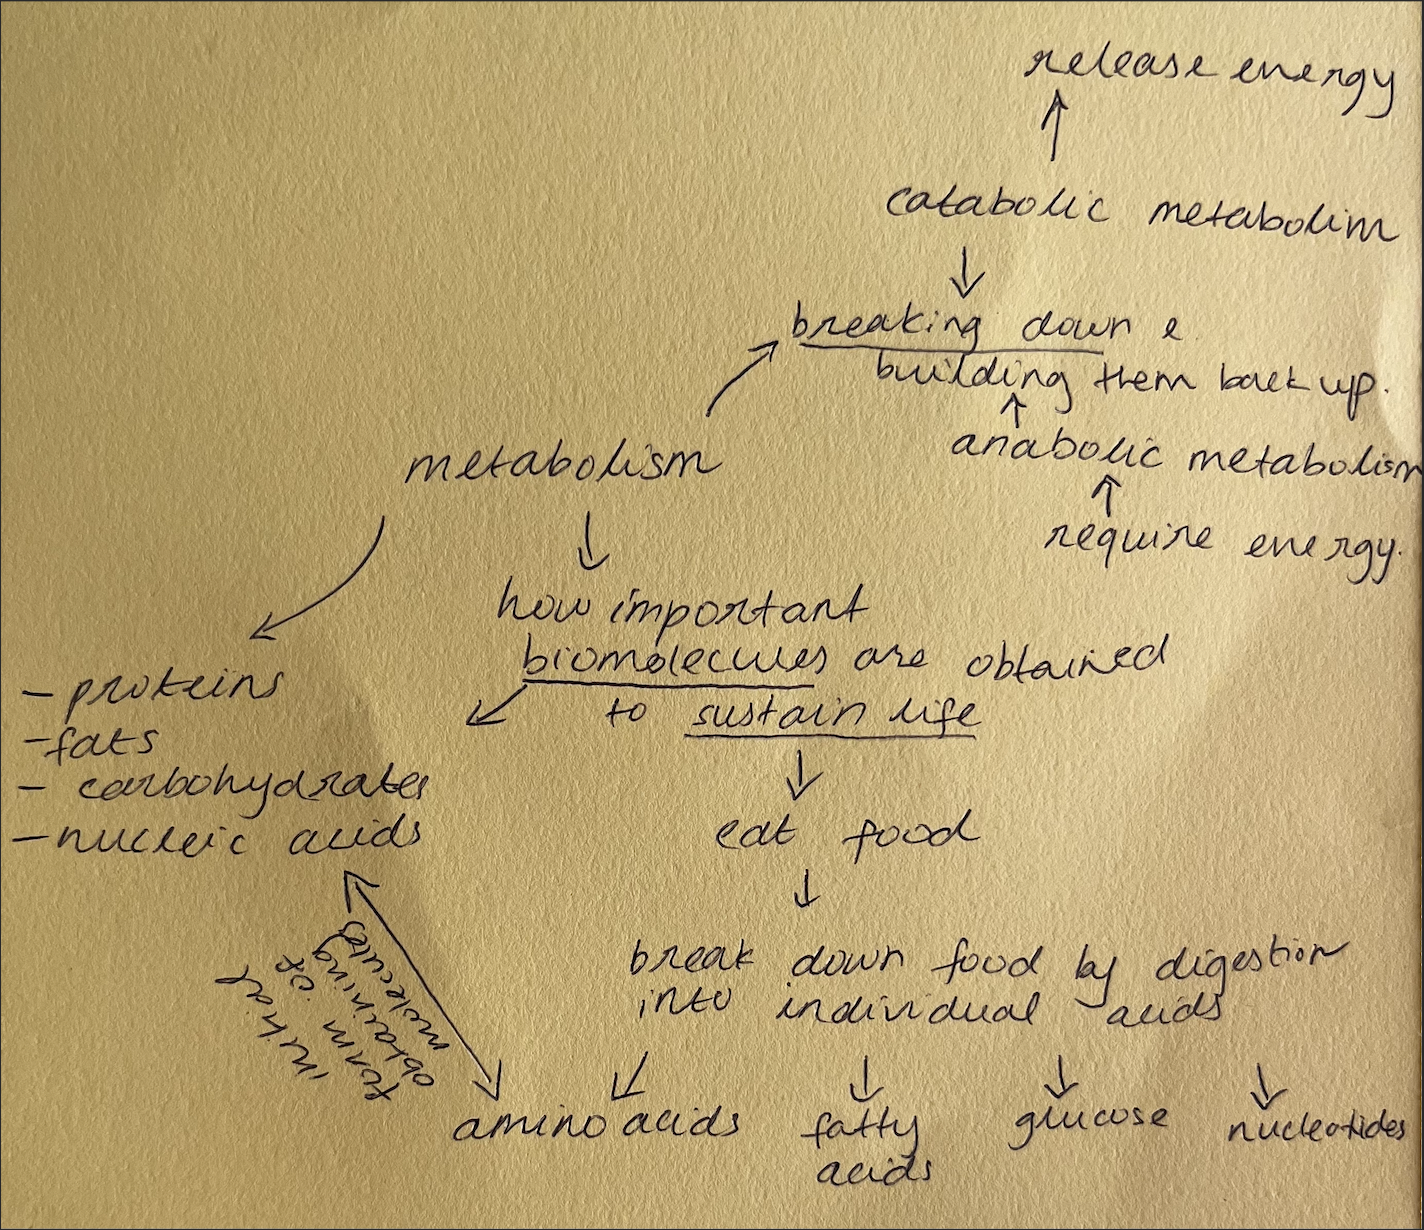 release energy
catabolic metabolim
breaking down e
building them back up.
anabolic metabolism
require energy.
metabolism
how important
biomolecules are obtained
to sustain life
- proteins
- fats
- carbohydrates
- nucleic acids
eat food
break down food by digestion
into individual acids
initial
form of
obtaining
molecules
amino acids
fatty
acids
glucose
nucleotides